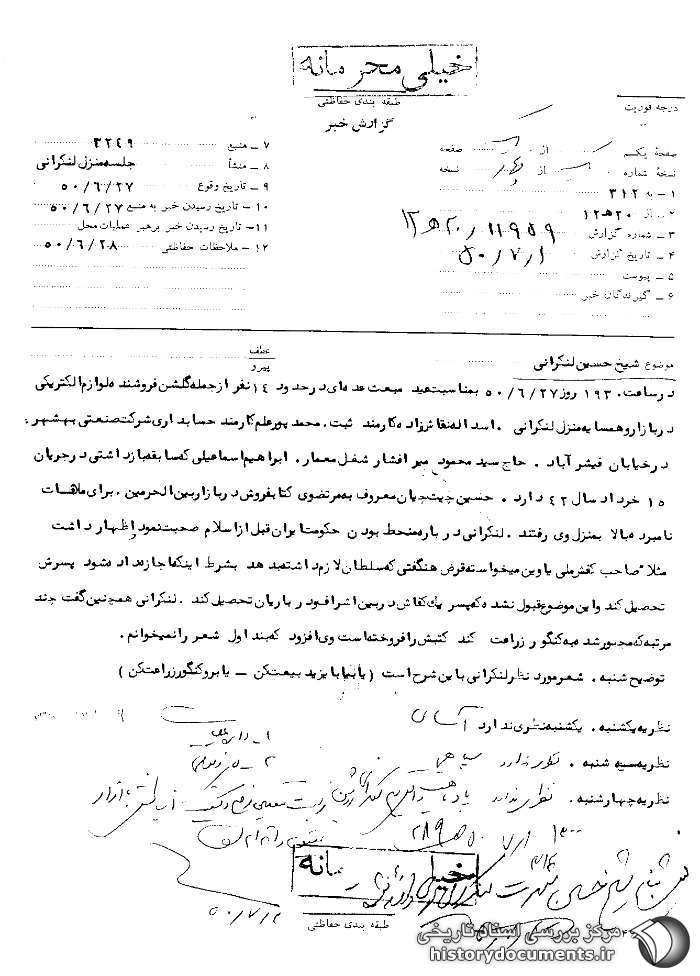 خیلی محرمانه
طبقه بندی حفاظتی
گزارش خبر
درجه فوریت
صفحهٔ یکم از صفحه
نسخهٔ شماره از نسخه
۱ - به ۳۱۲
۲ - از ۲۰ هـ ۱۲
۳ - شماره گزارش ۱۱۹۵۹ / ۲۰ هـ ۱۲
۴ - تاریخ گزارش ۵۰/۷/۱
۵ - پیوست
۶ - گیرندگان خبر
۷ - منبع ۳۲۴۹
۸ - منشأ جلسه منزل لنکرانی
۹ - تاریخ وقوع ۵۰/۶/۲۷
۱۰ - تاریخ رسیدن خبر به منبع ۵۰/۶/۲۷
۱۱ - تاریخ رسیدن خبر برهبر عملیات محل
۱۲ - ملاحظات حفاظتی ۵۰/۶/۲۸
موضوع شیخ حسین لنکرانی
عطف
پیرو
در ساعت ۱۹۳۰ روز ۵۰/۶/۲۷ بمناسبت عید مبعث عده‌ای در حدود ۱۴ نفر از جمله گلشن فروشنده لوازم الکتریکی
در بازار و همسایه منزل لنکرانی . اسداله نقاش زاده کارمند ثبت . محمد پورعلم کارمند حسابداری شرکت صنعتی بهشهر،
در خیابان فیشرآباد . حاج سید محمود میرافشار شغل معمار . ابراهیم اسماعیلی که سابقه بازداشتی در جریان
۱۵ خرداد سال ۴۲ دارد . حسین چیت‌چیان معروف به مرتضوی کتابفروش در بازار بین الحرمین . برای ملاقات
نامبرده بالا بمنزل وی رفتند . لنکرانی در باره منحط بودن حکومت ایران قبل از اسلام صحبت نمود اظهار داشت
مثلا" صاحب کفش ملی یا وین میخواسته قرض هنگفتی که سلطان لازم داشته بدهد بشرط اینکه اجازه داده شود پسرش
تحصیل کند و این موضوع قبول نشده که پسر یك کفاش در بین اشراف و درباریان تحصیل کند . لنکرانی همچنین گفت چند
مرتبه که مجبور شده به کنگور زراعت کند کتبش را فروخته است وی افزود که بند اول شعر را نمیخوانم .
توضیح شنبه . شعر مورد نظر لنکرانی باین شرح است ( یا بیا با یزید بیعت کن - یا برو کنگور زراعت کن )
نظریه یکشنبه . یکشنبه نظری ندارد آسای
نظریه سه شنبه . نظری ندارد
نظریه چهارشنبه . نظری ندارد
خیلی محرمانه
طبقه بندی حفاظتی
۵۰/۷/۲
مرکز بررسی اسناد تاریخی
historydocuments.ir